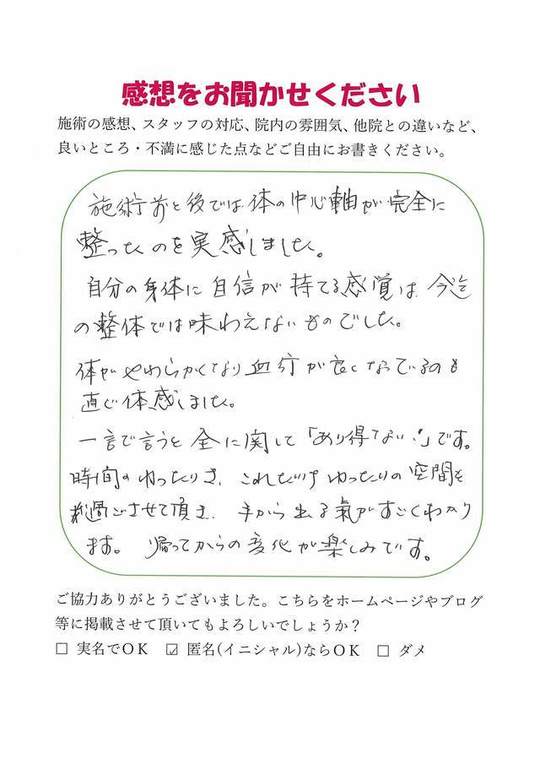 感想をお聞かせください
施術の感想、スタッフの対応、院内の雰囲気、他院との違いなど、
良いところ・不満に感じた点などご自由にお書きください。
施術前と後では体の中心軸が完全に
整ったのを実感しました。
自分の身体に自信が持てる感覚は今迄
の整体では味わえないものでした。
体がやわらかくなり血行が良くなっているのも
直ぐ体感しました。
一言で言うと全に関して「あり得ない!」です。
時間のゆったりさ、これだけゆったりの空間を
過ごさせて頂き、手から出る氣がすごくわかり
ます。帰ってからの変化が楽しみです。
ご協力ありがとうございました。こちらをホームページやブログ
等に掲載させて頂いてもよろしいでしょうか?
□ 実名でOK ☑ 匿名(イニシャル)ならOK □ ダメ